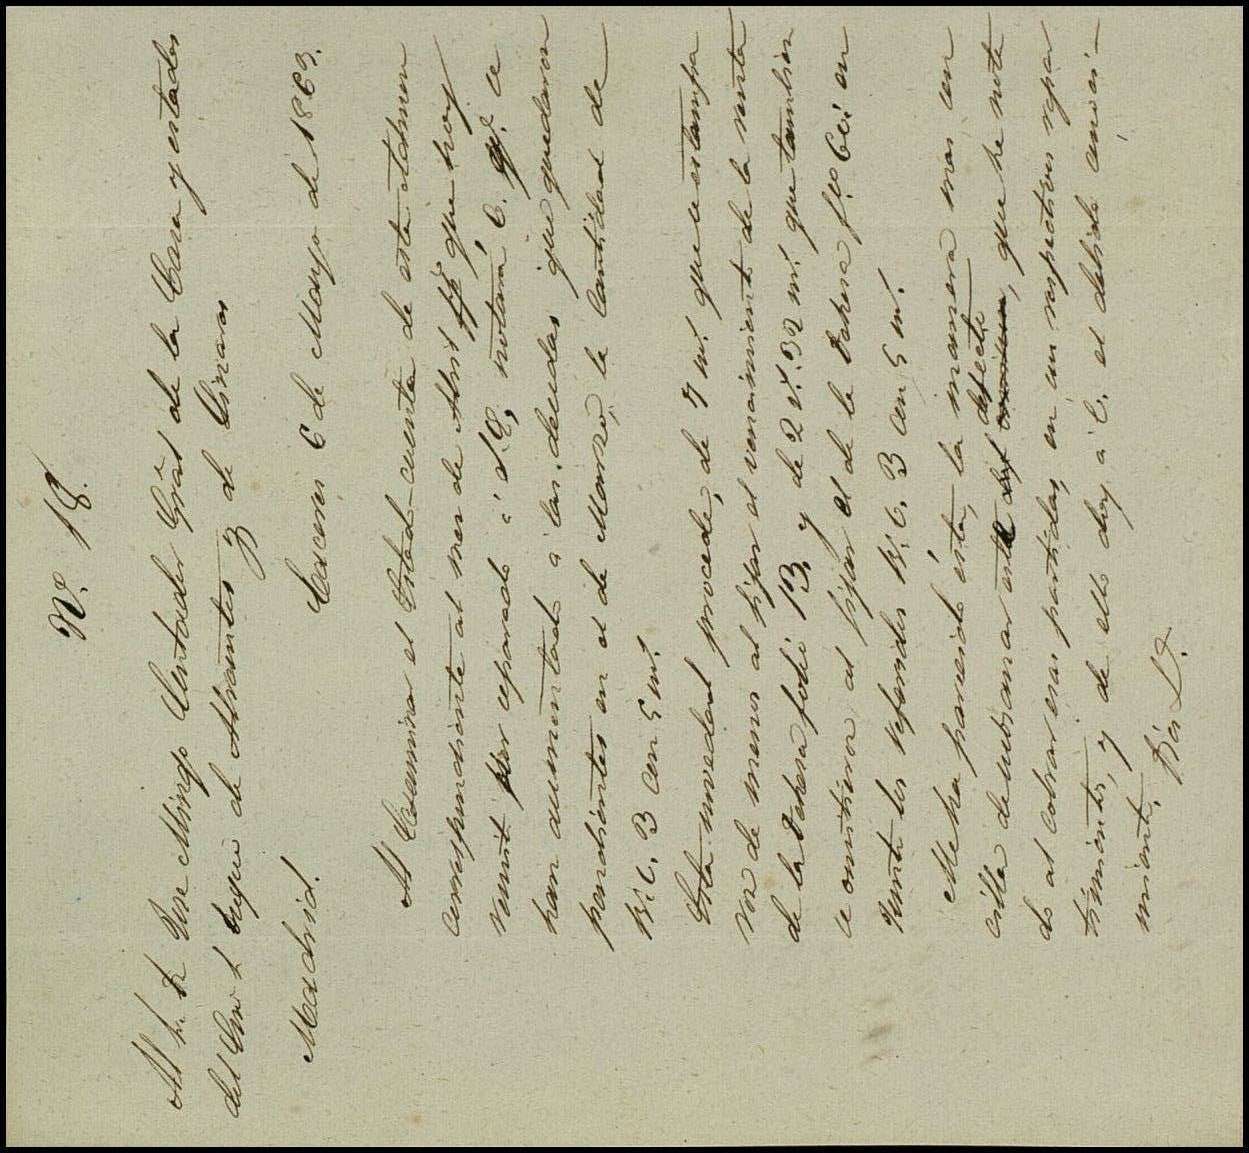 Nº. 18.
Al Sr. Dn Jose Mingo Contador Gral de la Casa y estados
del Exmo Sr Duque de Abrantes y de Linares
Madrid. Cáceres 6 de Mayo de 1863.
Al Examinar el Estado-cuenta de esta Admon
correspondiente al mes de Abril que hoy
remito por separado á V.E., notará E. qe. se
han aumentado á las deudas que quedaron
pendientes en el de Marzo, la Cantidad de
R.s 3 con 5 ms.
Esta novedad procede, de 7 ms. que se estampa
ron de menos al fijar el vencimiento de la renta
de la Dehesa folio 13, y de 2 rs. 32 ms. que tambien
se omitieron al fijar el de la Dehesa fº. 60: en
junto los referidos 3 con 5 ms.
Me ha parecido esta, la manera mas sen
cilla de subsanar este defecto, que he nota
do al cobrar esas partidas, en sus respectivos repar
timientos, y de ello doy á E. el debido conoci-
miento. Dios &.